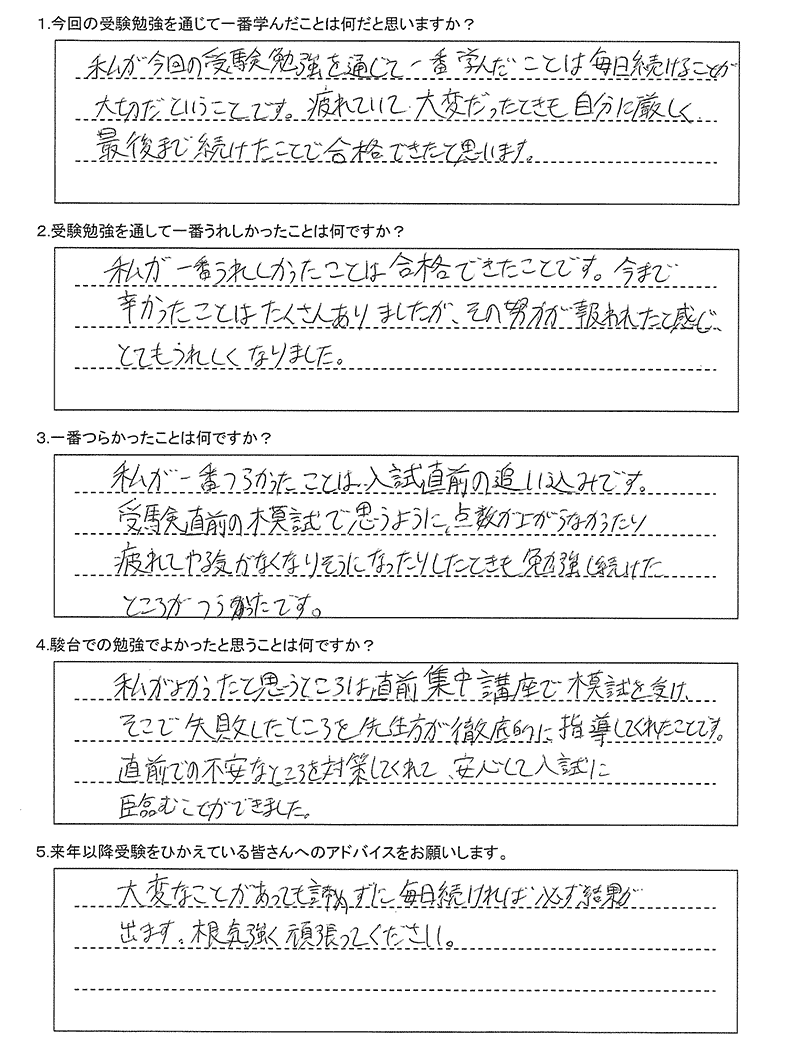 1.今回の受験勉強を通じて一番学んだことは何だと思いますか？
私が今回の受験勉強を通じて一番学んだことは毎日続けることが
大切だということです。疲れていて大変だったときも自分に厳しく
最後まで続けたことで合格できたと思います。
2.受験勉強を通して一番うれしかったことは何ですか？
私が一番うれしかったことは合格できたことです。今まで
辛かったことはたくさんありましたが、その努力が報われたと感じ、
とてもうれしくなりました。
3.一番つらかったことは何ですか？
私が一番つらかったことは、入試直前の追い込みです。
受験直前の模試で思うように点数が上がらなかったり
疲れてやる気がなくなりそうになったりしたときも勉強し続けた
ところがつらかったです。
4.駿台での勉強でよかったと思うことは何ですか？
私がよかったと思うところは直前集中講座で模試を受け、
そこで失敗したところを先生方が徹底的に指導してくれたことです。
直前での不安なところを対策してくれて、安心して入試に
臨むことができました。
5.来年以降受験をひかえている皆さんへのアドバイスをお願いします。
大変なことがあっても諦めずに毎日続ければ必ず結果が
出ます。根気強く頑張ってください。